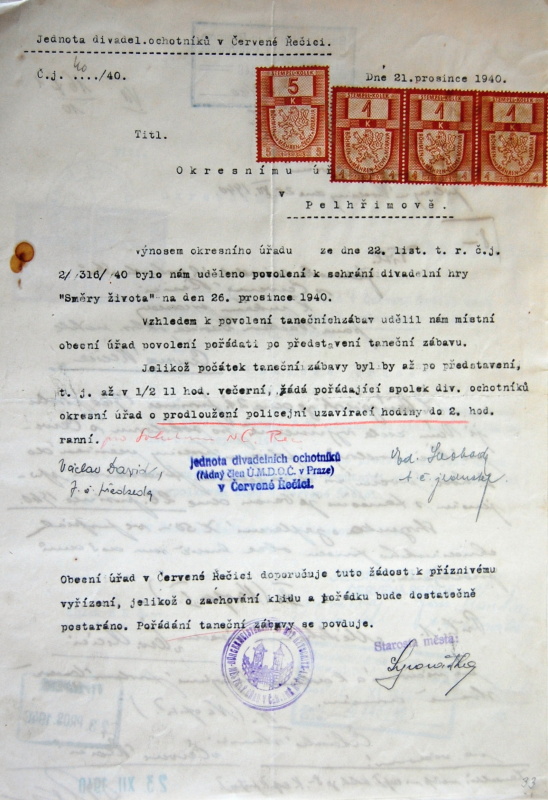 Jednota divadel.ochotníků v Červené Řečici.
Č.j. ..../40.
40
Dne 21.prosince 1940.
STEMPEL-KOLEK
5
K
STEMPEL-KOLEK
1
K
STEMPEL-KOLEK
1
K
STEMPEL-KOLEK
1
K
Titl.
Okresnímu ú
v
Pelhřimově.
výnosem okresního úřadu ze dne 22. list. t. r. č.j.
2/ 316/ 40 bylo nám uděleno povolení k sehrání divadelní hry
"Směry života" na den 26. prosince 1940.
Vzhledem k povolení tanečníchzábav udělil nám místní
obecní úřad povolení pořádati po představení taneční zábavu.
Jelikož počátek taneční zábavy bylby až po představení,
t. j. až v 1/2 11 hod. večerní, žádá pořádající spolek div. ochotníků
okresní úřad o prodloužení policejní uzavírací hodiny do 2. hod.
ranní.
Václav David,
t. č. předseda
jednota divadelních ochotníků
(řádný člen Ú.M.D.O.Č. v Praze)
v Červené Řečici.
t. č. jednatel
Obecní úřad v Červené Řečici doporučuje tuto žádost k příznivému
vyřízení, jelikož o zachování klidu a pořádku bude dostatečně
postaráno. Pořádání taneční zábavy se povduje.
Starosta města:
23 XII 1940
93